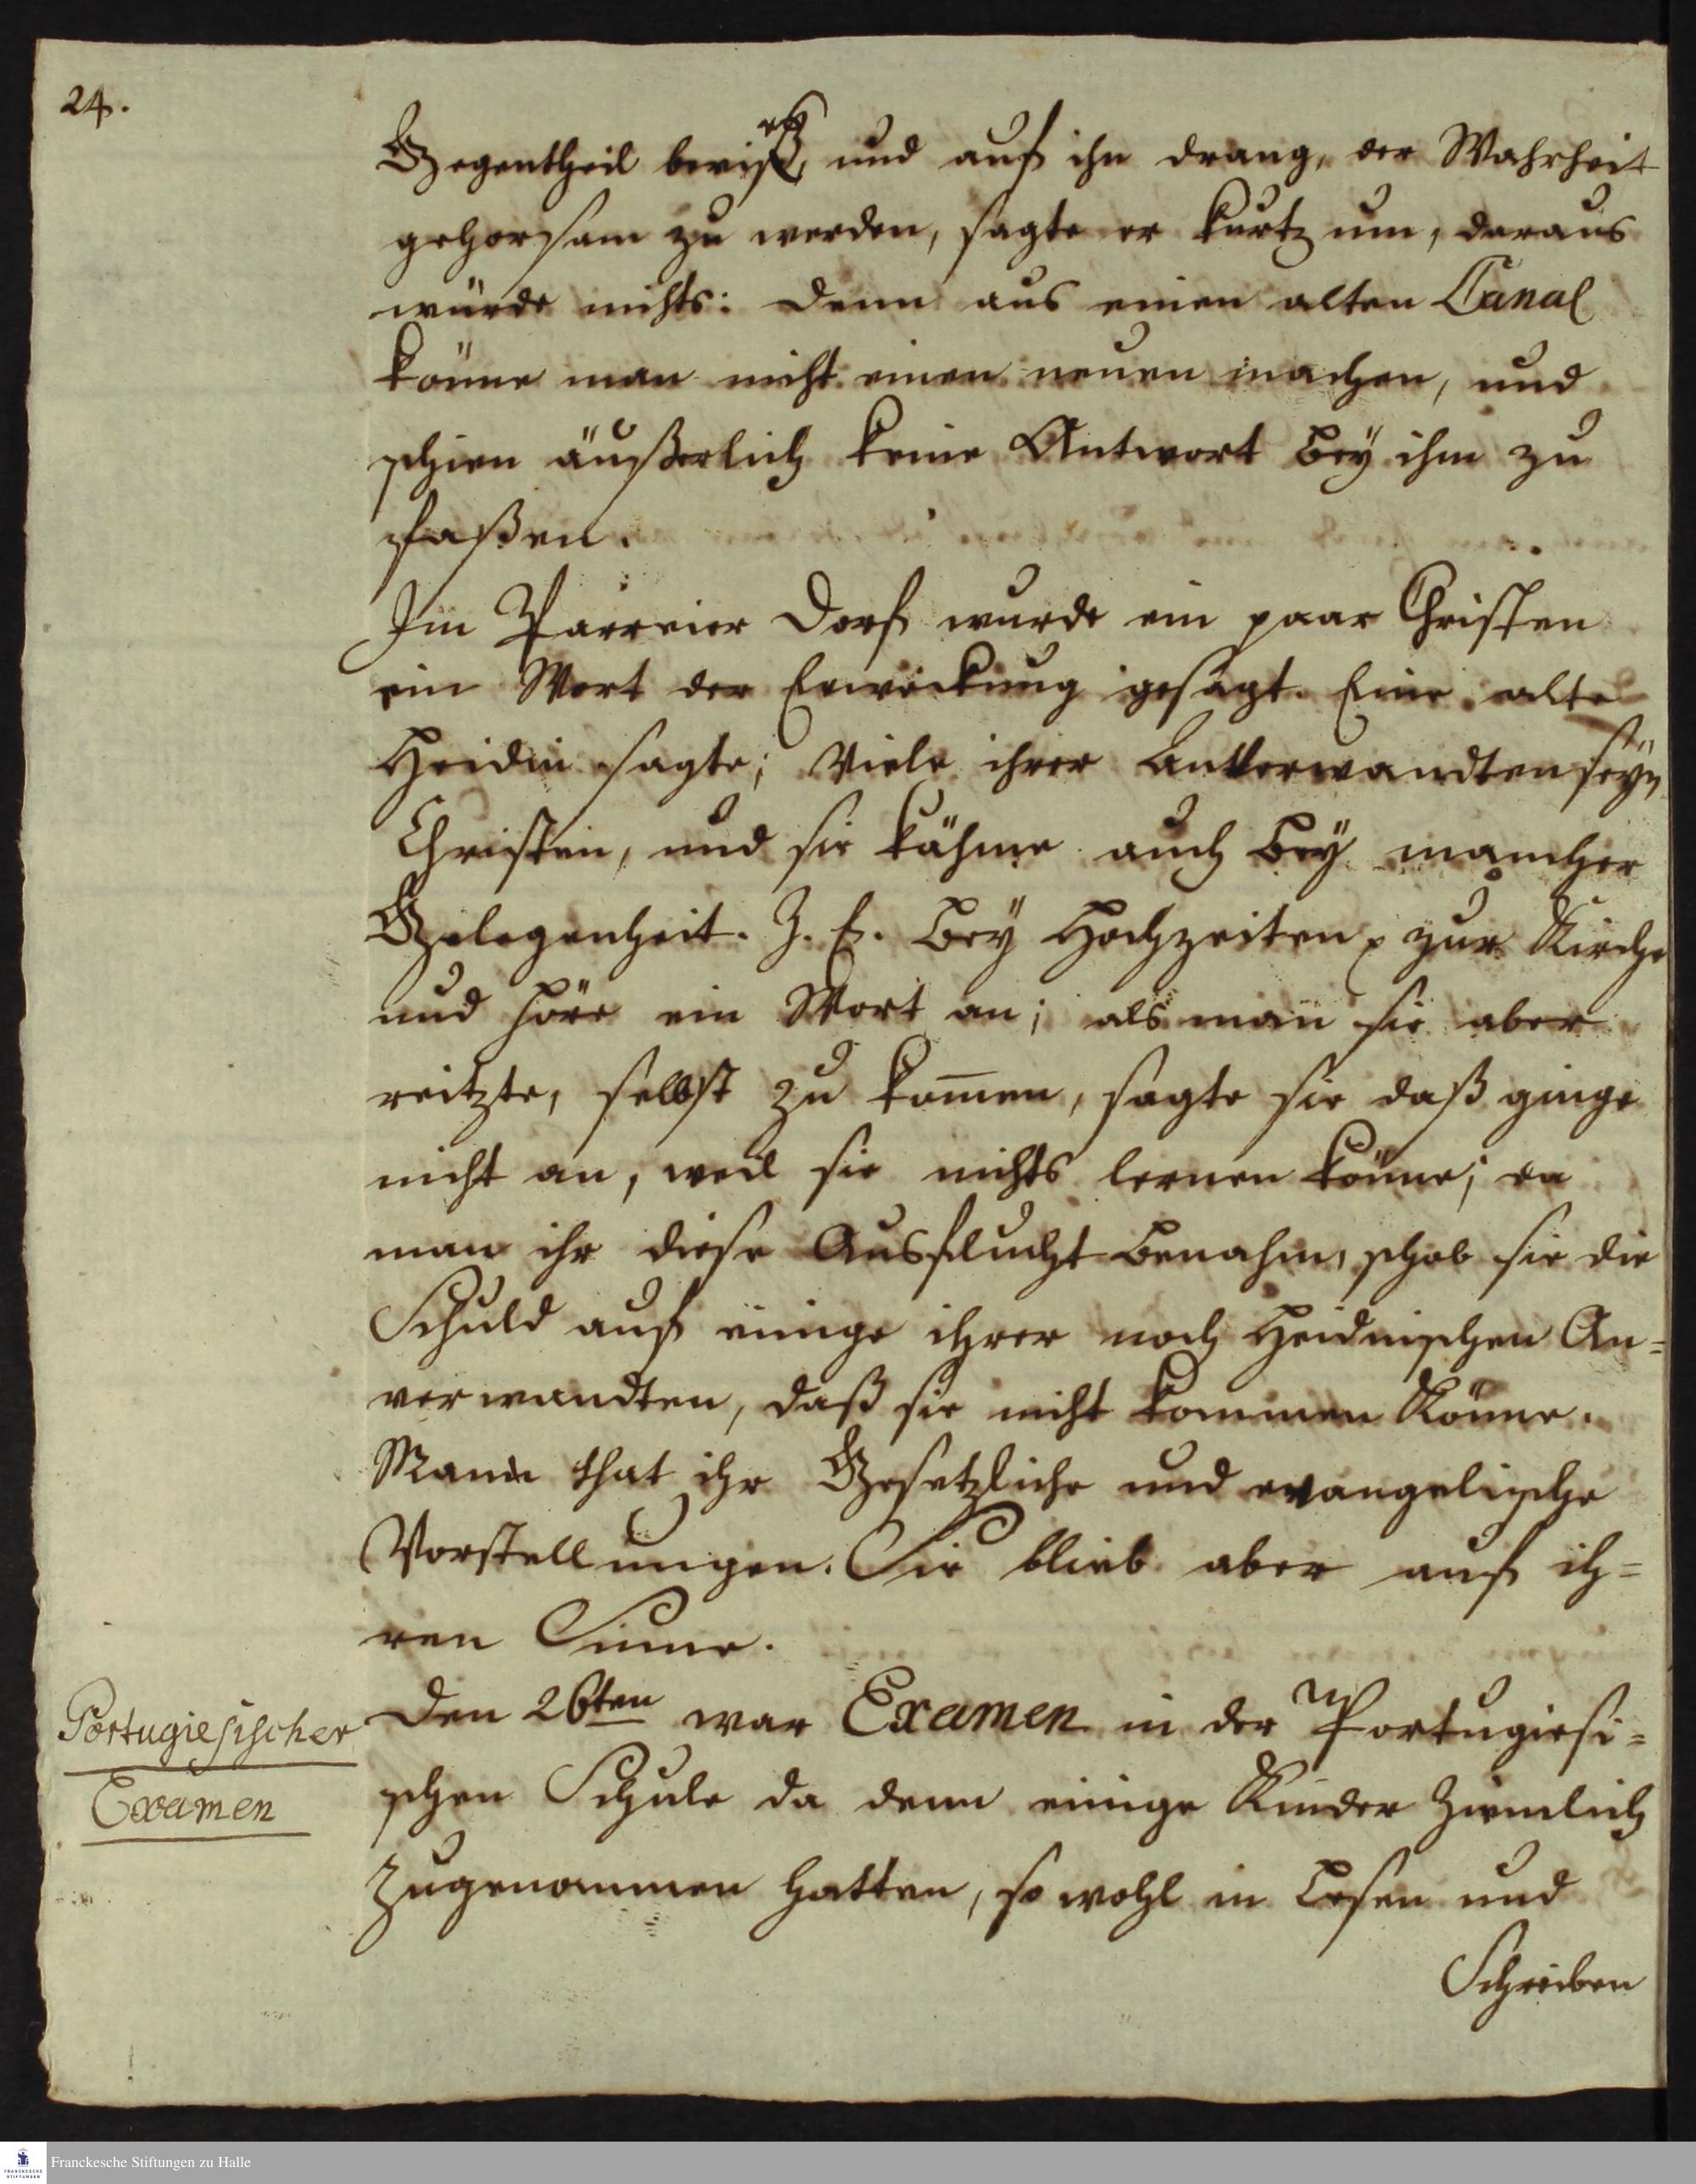 24.
Gegentheil bewieß, und auf ihn drang, der Wahrheit
gehorsam zu werden, sagte er kurtz um, daraus
würde nichts: denn aus einen alten Canal
könne man nicht einen neuen machen, und
schien äußerlich keine Antwort bey ihm zu
faßen.
Im Parreier Dorf wurde ein paar Christen
ein Wort der Erweckung gesagt. Eine alte
Heidin sagte; Viele ihrer Anverwandten seyn
Christen, und sie kähme auch bey mancher
Gelegenheit. Z. E. bey Hochzeiten zur Kirche
und höre ein Wort an; als man sie aber
reitzte, selbst zu kom̅en, sagte sie daß ginge
nicht an, weil sie nichts lernen könne; da
man ihr diese Ausflucht benahm, schob sie die
Schuld auf einige ihrer noch Heidnischen An=
verwandten, daß sie nicht kommen Könne.
Mann that ihr Gesetzliche und evangelische
Vorstellungen. Sie blieb aber auf ih=
ren Sinne.
Portugiesischer
Examen
Den 26ten war Examen in der Portugiesi=
schen Schule da denn einige Kinder Ziemlich
Zugenommen hatten, so wohl in Lesen und
Schreiben
Franckesche Stiftungen zu Halle